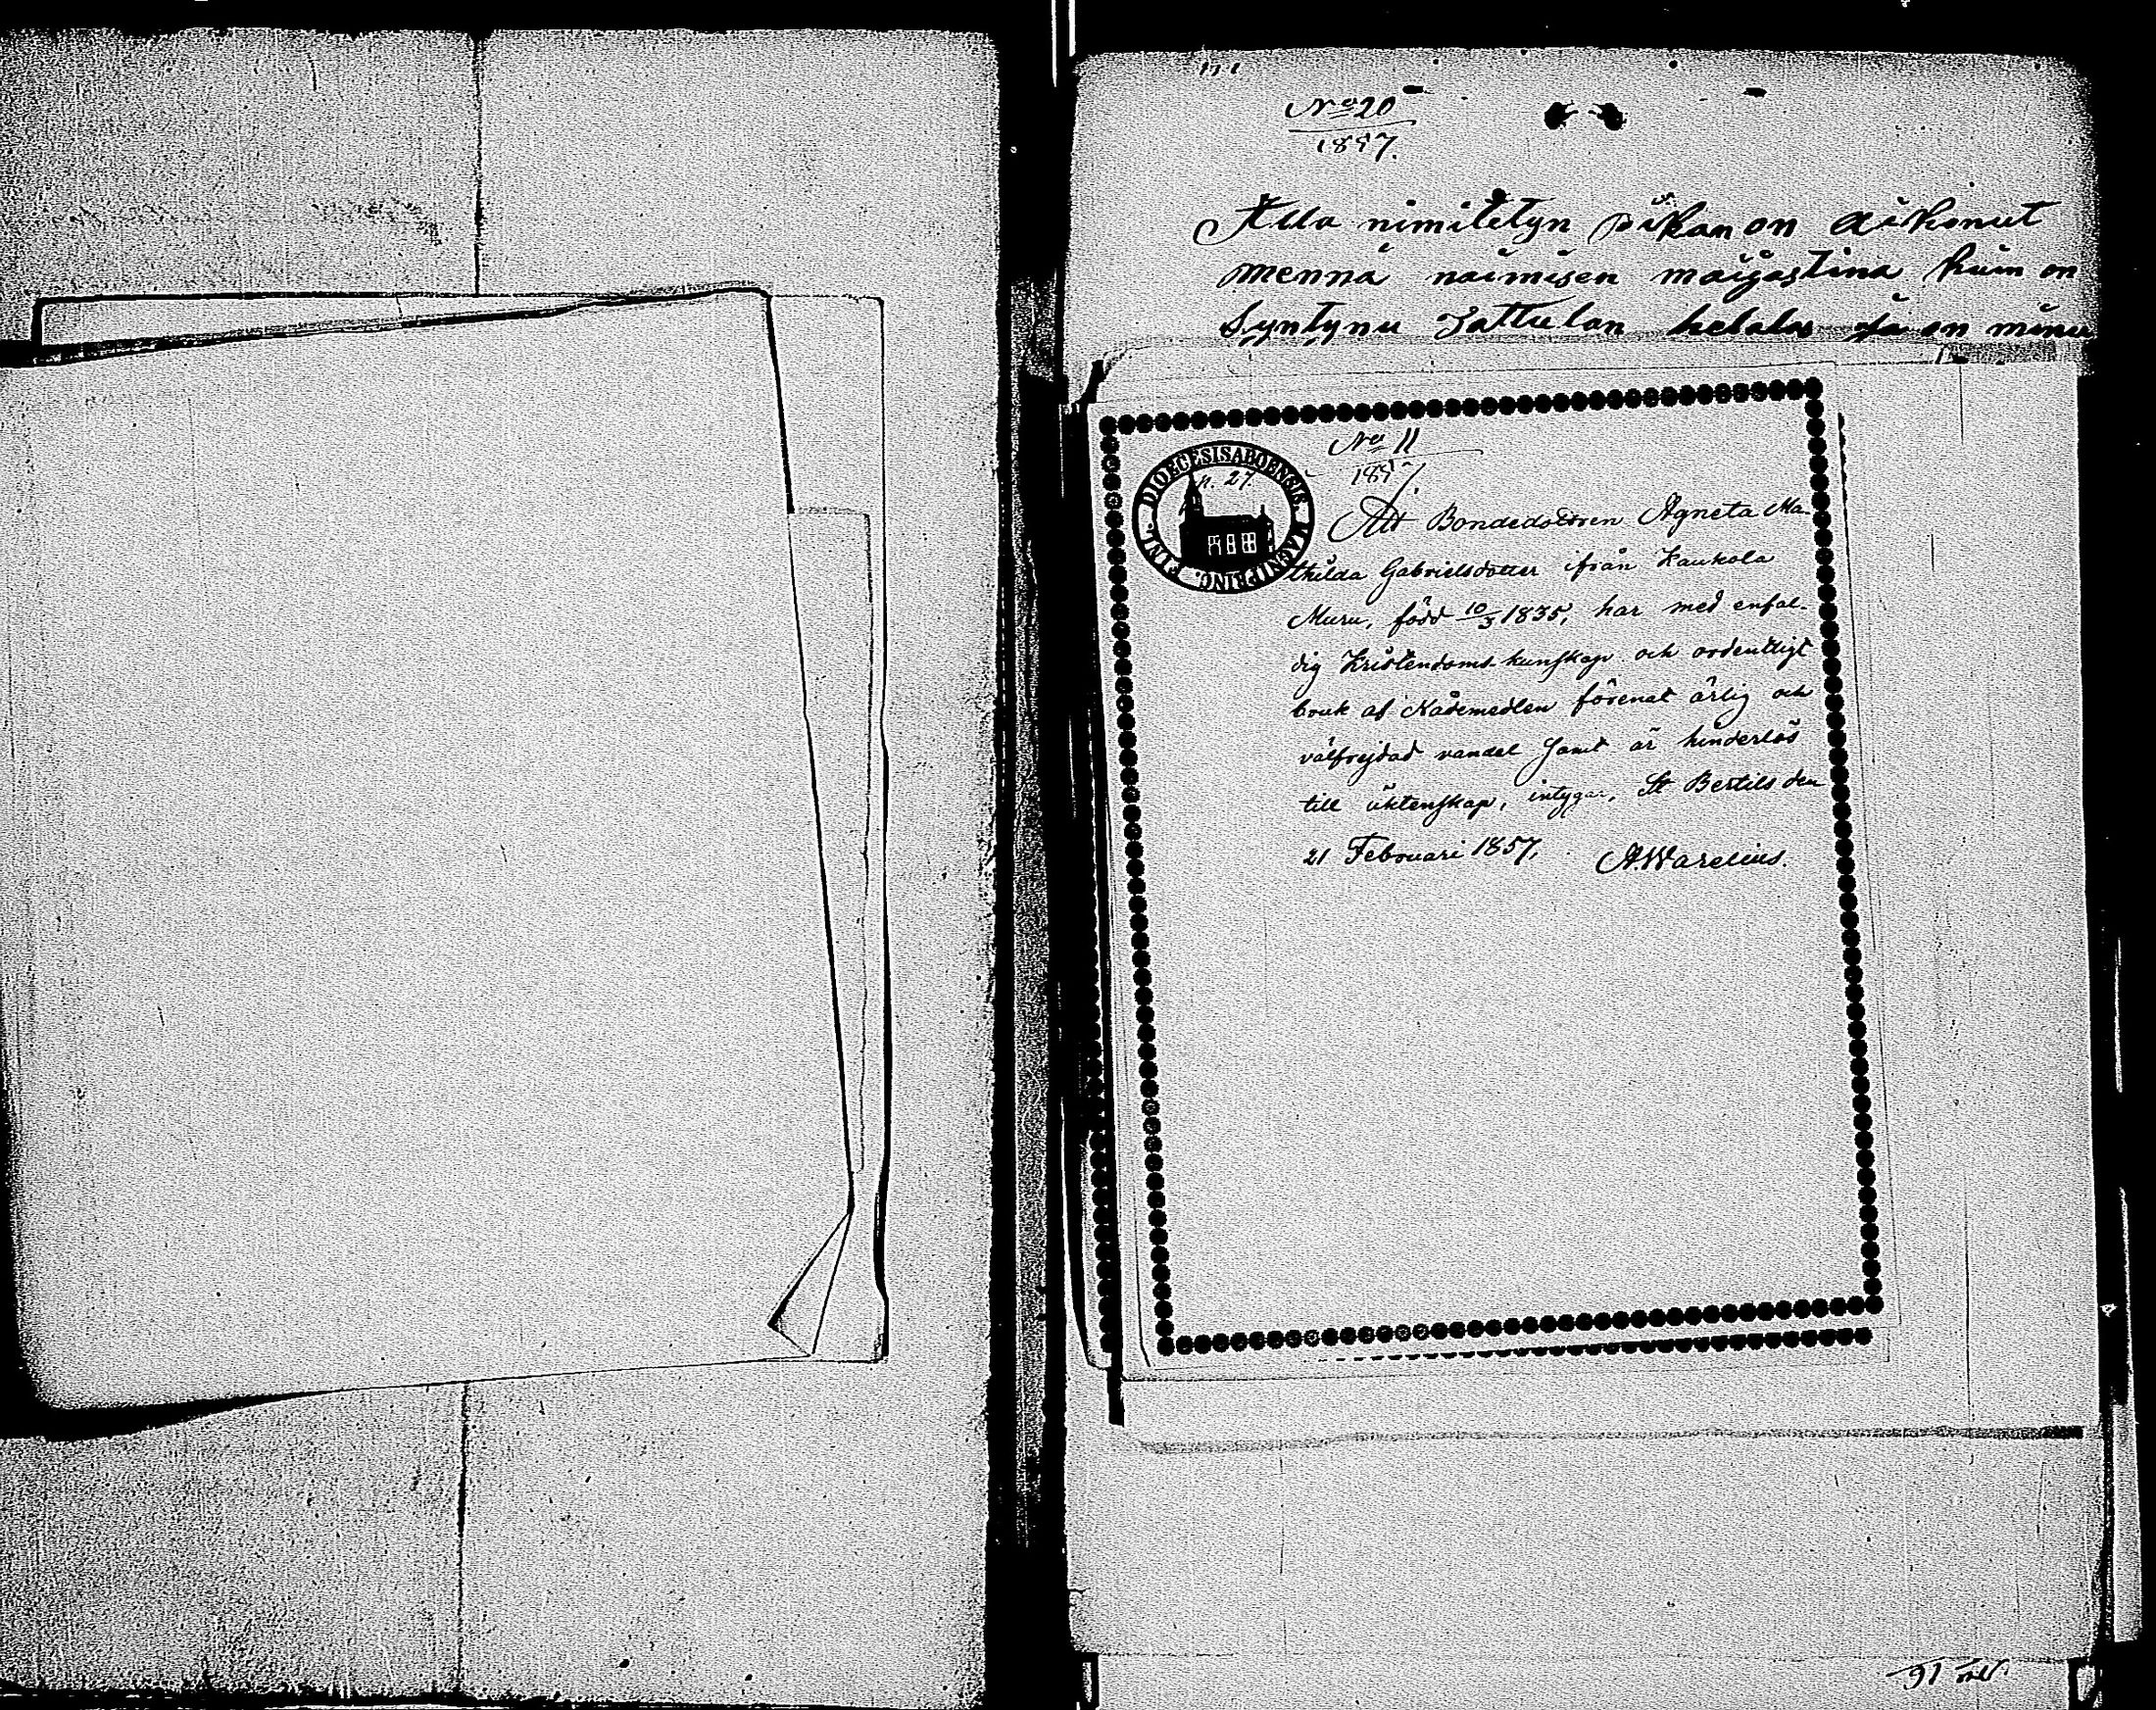 No 20
1857.
Alla nimitetyn piikan on aikonut
mennä naimisen maijastina kuin on
Syntynu Tattulan kelalas ja on minu
No 11
1857.
DIOECESIS ABOENSIS MAGNI PRINC. FINL.
p. 27.
Att Bondedottren Agneta Ma-
thilda Gabrielsdotter ifrån Kaukola
Muru, född 10/3 1835, har med enfal-
dig Kristendoms kunskap och ordentligt
bruk af Nådemedlen förenat ärlig och
välfrejdad vandel samt är hinderlös
till äktenskap, intygar, St Bertils den
21 Februari 1857, A. Warelius.